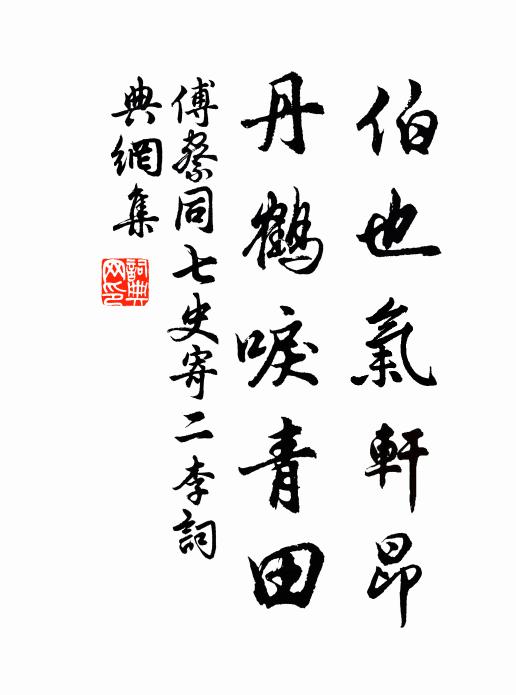 伯也氣軒昂
丹鶴唳青田
傅察同七史寄二李詞
典網集
詞典網印